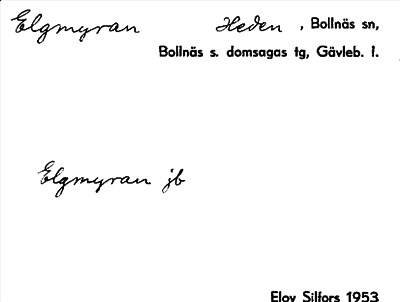 Elgmyran Heden, Bollnäs sn,
Bollnäs s. domsagas tg, Gävleb. l.
Elgmyran jb
Elov Silfors 1953